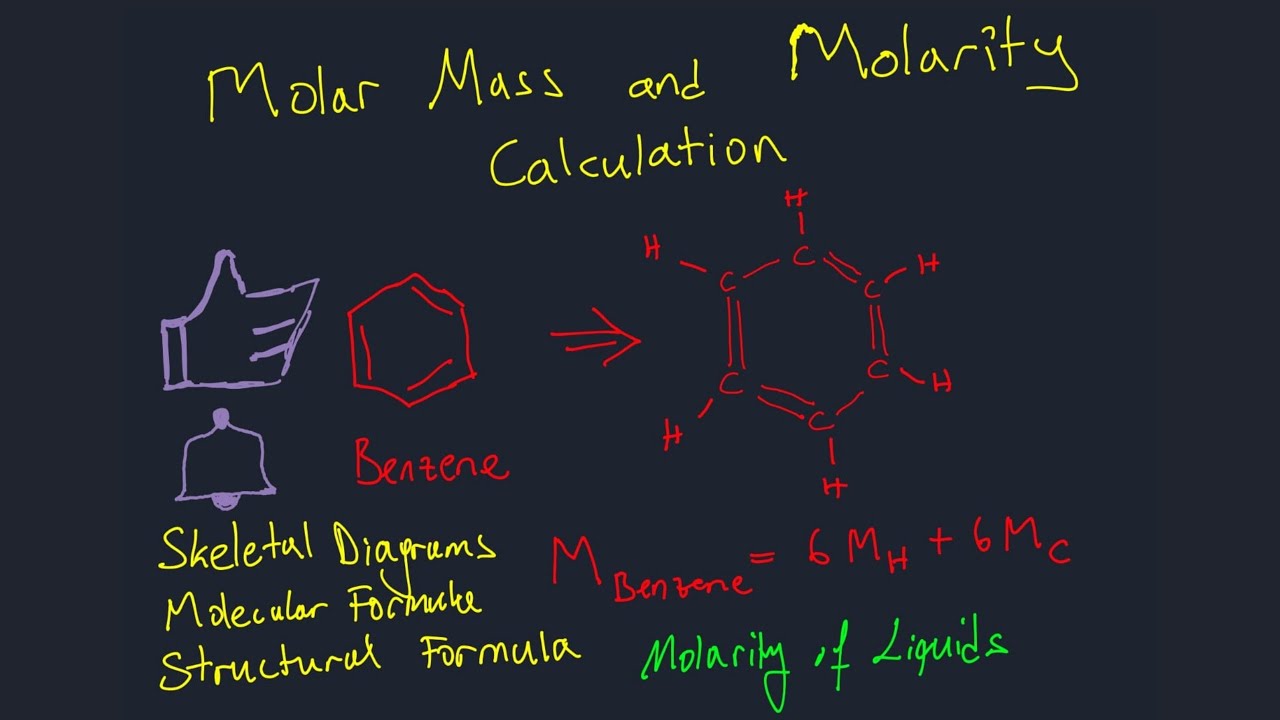 Molar Mass and Molarity
Calculation
H
H
C
H
C
C
C
C
H
H
C
H
Benzene
Skeletal Diagrams
Molecular Formulae
Structural Formula
M Benzene = 6 M H + 6 M C
Molarity of Liquids